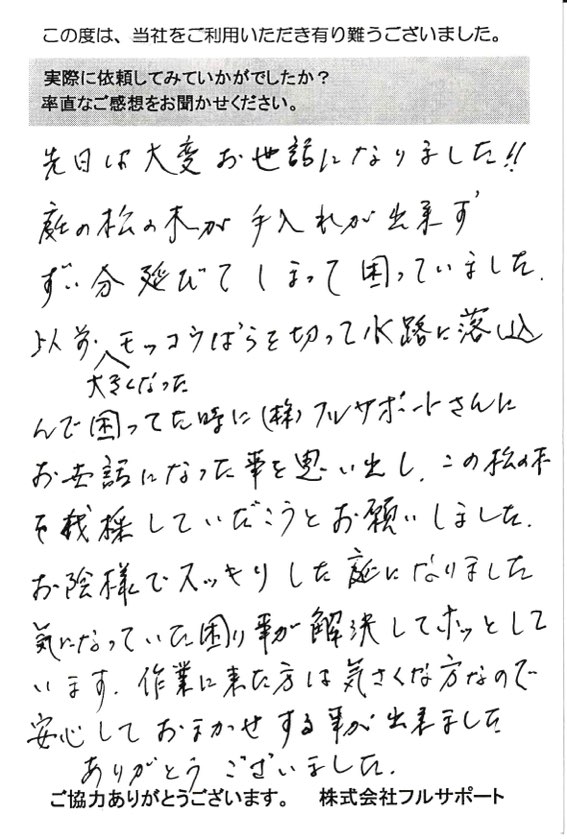 この度は、当社をご利用いただき有り難うございました。
実際に依頼してみていかがでしたか？
率直なご感想をお聞かせください。
先日は大変お世話になりました!!
庭の松の木が手入れが出来ず
ずい分延びてしまって困っていました.
以前、モッコウばらを切って水路に落込
大きくなった
んで困ってた時に(株)フルサポートさんに
お世話になった事を思い出し、この松の木
を伐採していだこうとお願いしました.
お陰様でスッキリした庭になりました
気になっていた困り事が解決してホッとして
います. 作業に来た方は気さくな方なので
安心しておまかせする事が出来ました
ありがとうございました.
ご協力ありがとうございます。 株式会社フルサポート